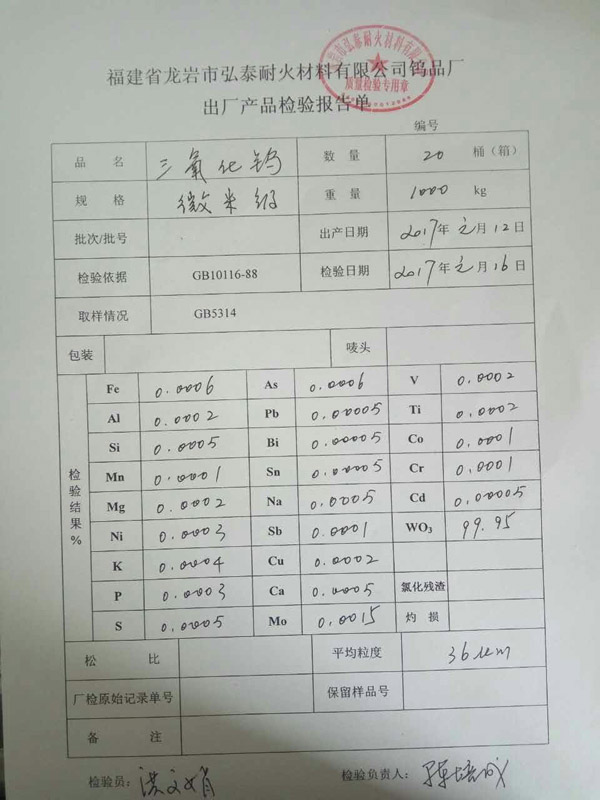 福建省龙岩市弘泰耐火材料有限公司钨品厂
市弘泰耐火材料有限
质量检验专用章
出厂产品检验报告单
编号
品 名 三氧化钨 数 量 20 桶（箱）
规 格 微米级 重 量 1000 kg
批次/批号 出产日期 2017年元月12日
检验依据 GB10116-88 检验日期 2017年元月16日
取样情况 GB5314
包装 唛头
检验结果%
Fe 0.0006 As 0.0006 V 0.0002
Al 0.0002 Pb 0.00005 Ti 0.0002
Si 0.0005 Bi 0.00005 Co 0.0001
Mn 0.0001 Sn 0.00005 Cr 0.0001
Mg 0.0002 Na 0.0005 Cd 0.00005
Ni 0.0003 Sb 0.0001 WO₃ 99.95
K 0.0004 Cu 0.0002
P 0.0003 Ca 0.0005 氯化残渣
S 0.0005 Mo 0.0015 灼 损
松 比 平均粒度 36μm
厂检原始记录单号 保留样品号
备 注
检验员： 检验负责人：